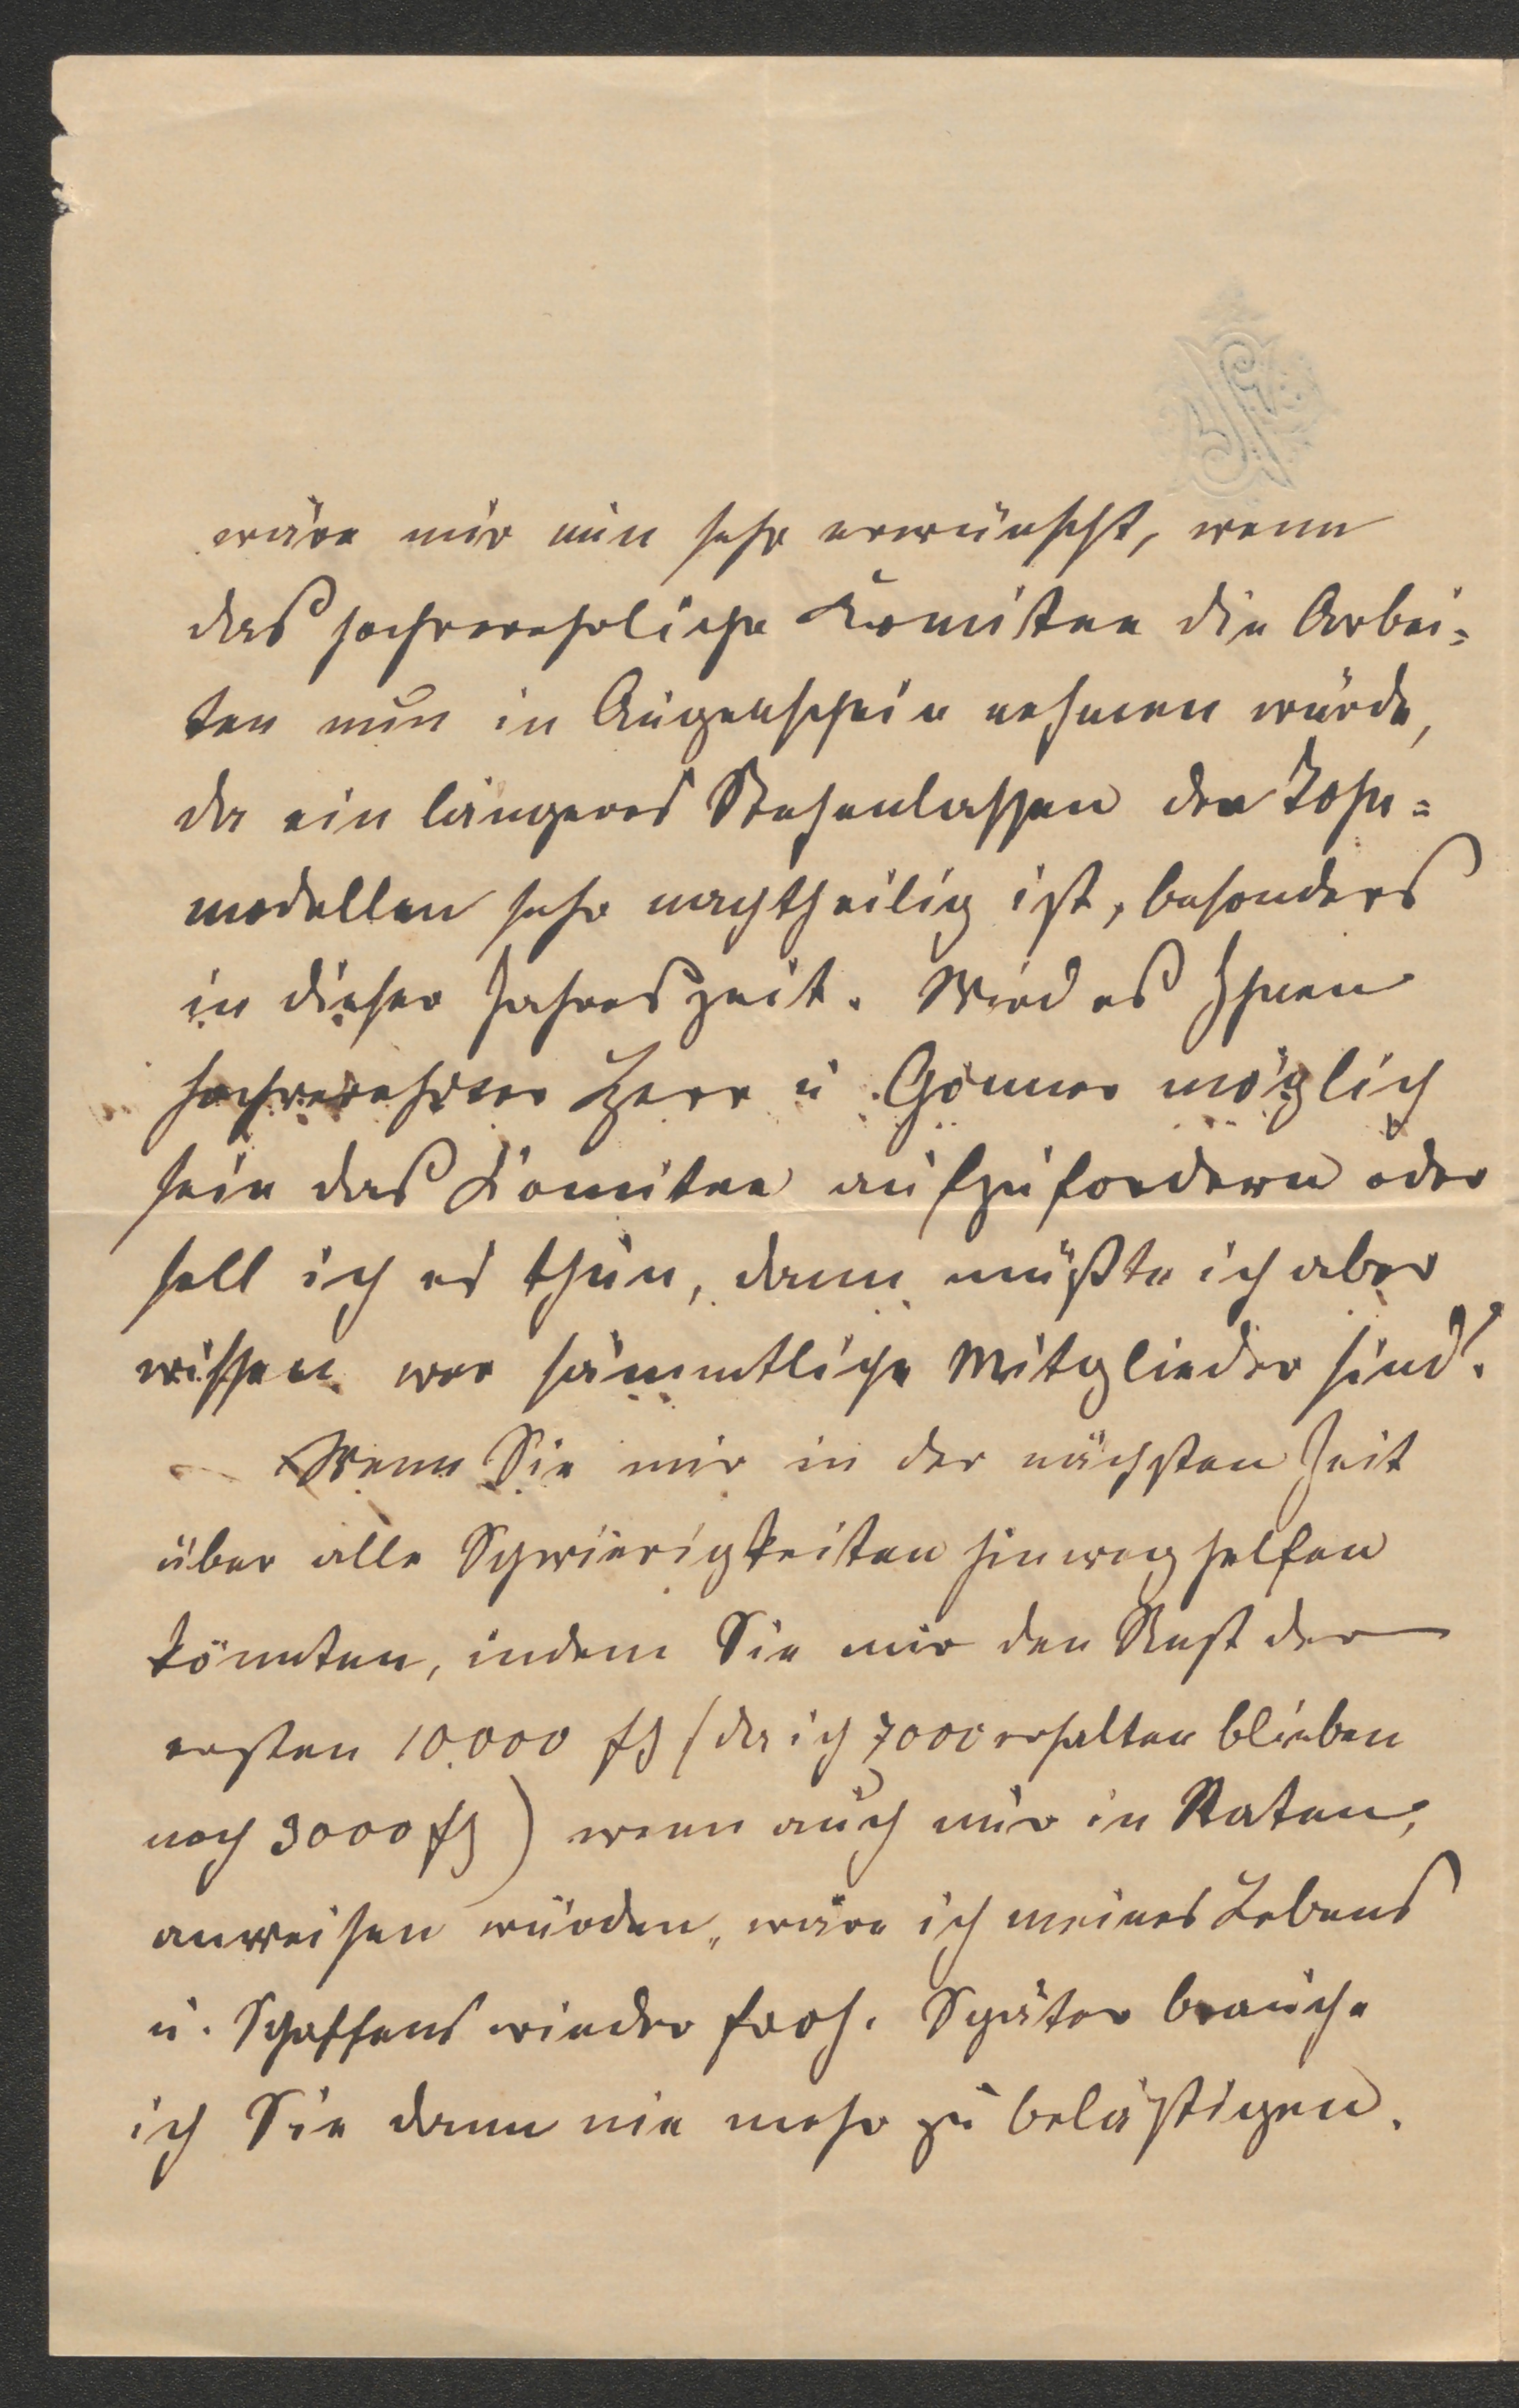 wäre mir nun sehr erwünscht, wenn
das hochverehrliche Komitee die Arbei=
ten nun in Augenschein nehmen würde,
da ein längeres Stehenlassen der Thon=
modellen sehr nachtheilig ist, besonders
in dieser Jahreszeit. Wird es Ihnen
hochverehrter Herr u Gönner möglich
sein das Komitee aufzufordern oder
soll ich es thun, dann müßte ich aber
wissen wer sämmtliche Mitglieder sind?
Wenn Sie mir in der nächsten Zeit
über alle Schwierigkeiten hinweg helfen
könnten, indem Sie mir den Rest der
ersten 10.000 fl (da ich 7000 erhalten blieben
noch 3000 fl) wenn auch nur in Raten,
anweisen würden, wäre ich meines Lebens
u. Schaffens wieder froh. Später brauche
ich Sie dann nie mehr zu belästigen.